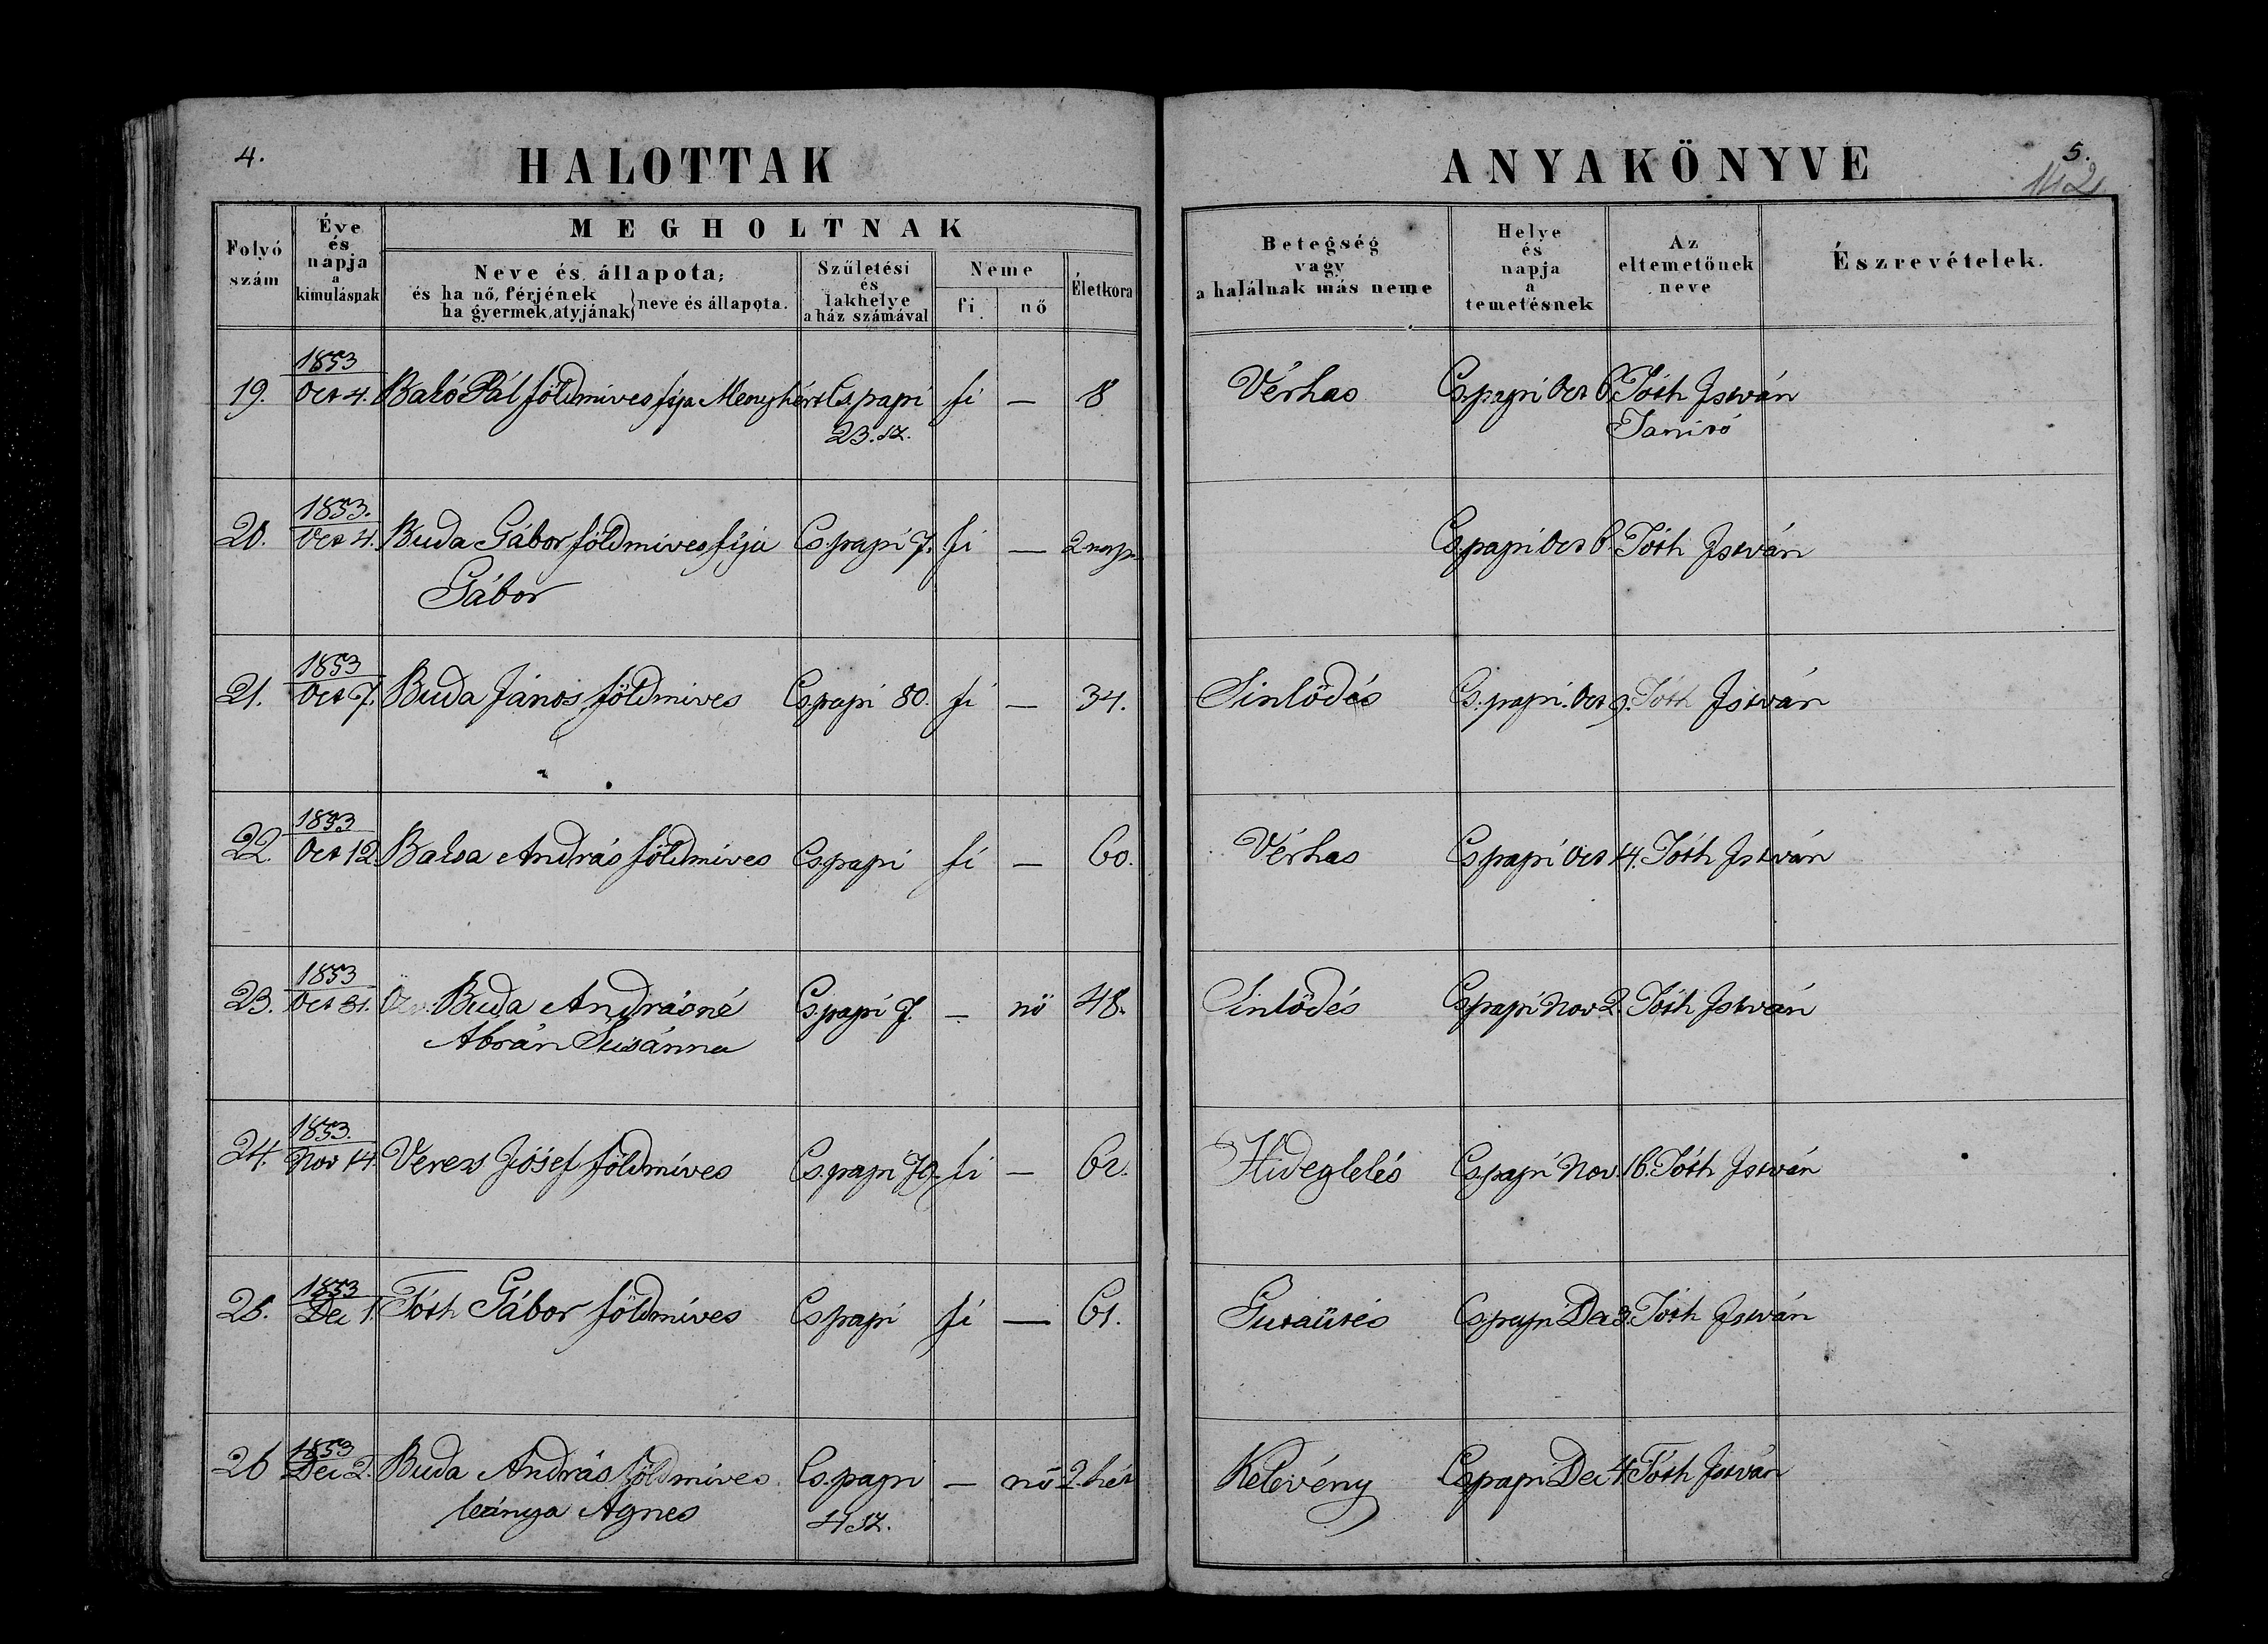 4.
HALOTTAK
Folyó szám
Éve és napja a kimulásnak
MEGHOLTNAK
Neve és állapota;
és ha nő, férjének
ha gyermek, atyjának } neve és állapota.
Születési és lakhelye a ház számával
Neme
fi
nő
Életkora
19. 1853 Oct 4. Bakó Pál földmíves fija Menyhért Cs.papi 23. sz. fi — 8
20. 1853. Oct 4. Buda Gábor földmíves fija Cs.papi 7. fi — 2 nap
Gábor
21. 1853 Oct 7. Buda János földmíves Cs.papi 80. fi — 34.
22. 1853 Oct 12. Balsa András földmíves Cspapi fi — 60.
23. 1853 Oct 31. Buda Andrásné Cs.papi 7. — nő 48.
Abrán Susánna
24. 1853. Nov 14. Veress Jósef földmíves Cs.papi 70. fi — 62.
25. 1853 Dec 1. Tóth Gábor földmíves Cspapi fi — 61.
26 1853 Dec 2. Buda András földmíves Cs.papi — nő 2. hét
leánya Agnes 4 sz.
5.
ANYAKÖNYVE
Betegség vagy a halálnak más neme
Helye és napja a temetésnek
Az eltemetőnek neve
Észrevételek.
Vérhas Cspapi Oct 6. Tóth István
Tanító
Cspapi Oct 6. Tóth István
Sinlődés Cs.papi. Oct 9. Tóth István
Vérhas Cspapi Oct 14. Tóth István
Sinlődés Cspapi Nov 2. Tóth István
Hideglelés Cspapi Nov. 16. Tóth István
Gutaütés Cspapi Dec 3. Tóth István
Kelevény Cspapi Dec 4 Tóth István